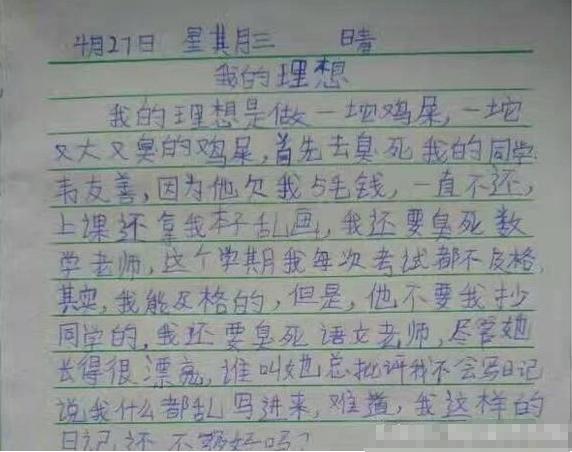 4月27日 星期三 晴
我的理想
我的理想是做一坨鸡屎,一坨
又大又臭的鸡屎,首先去臭死我的同学
韦友善,因为他欠我5毛钱,一直不还,
上课还拿我本子乱画,我还要臭死数
学老师,这个学期我每次考试都不及格,
其实,我能及格的,但是,他不要我抄
同学的,我还要臭死语文老师,尽管她
长得很漂亮,谁叫她总批评我不会写日记
说我什么都乱写进来,难道,我这样的
日记,还不够好吗?